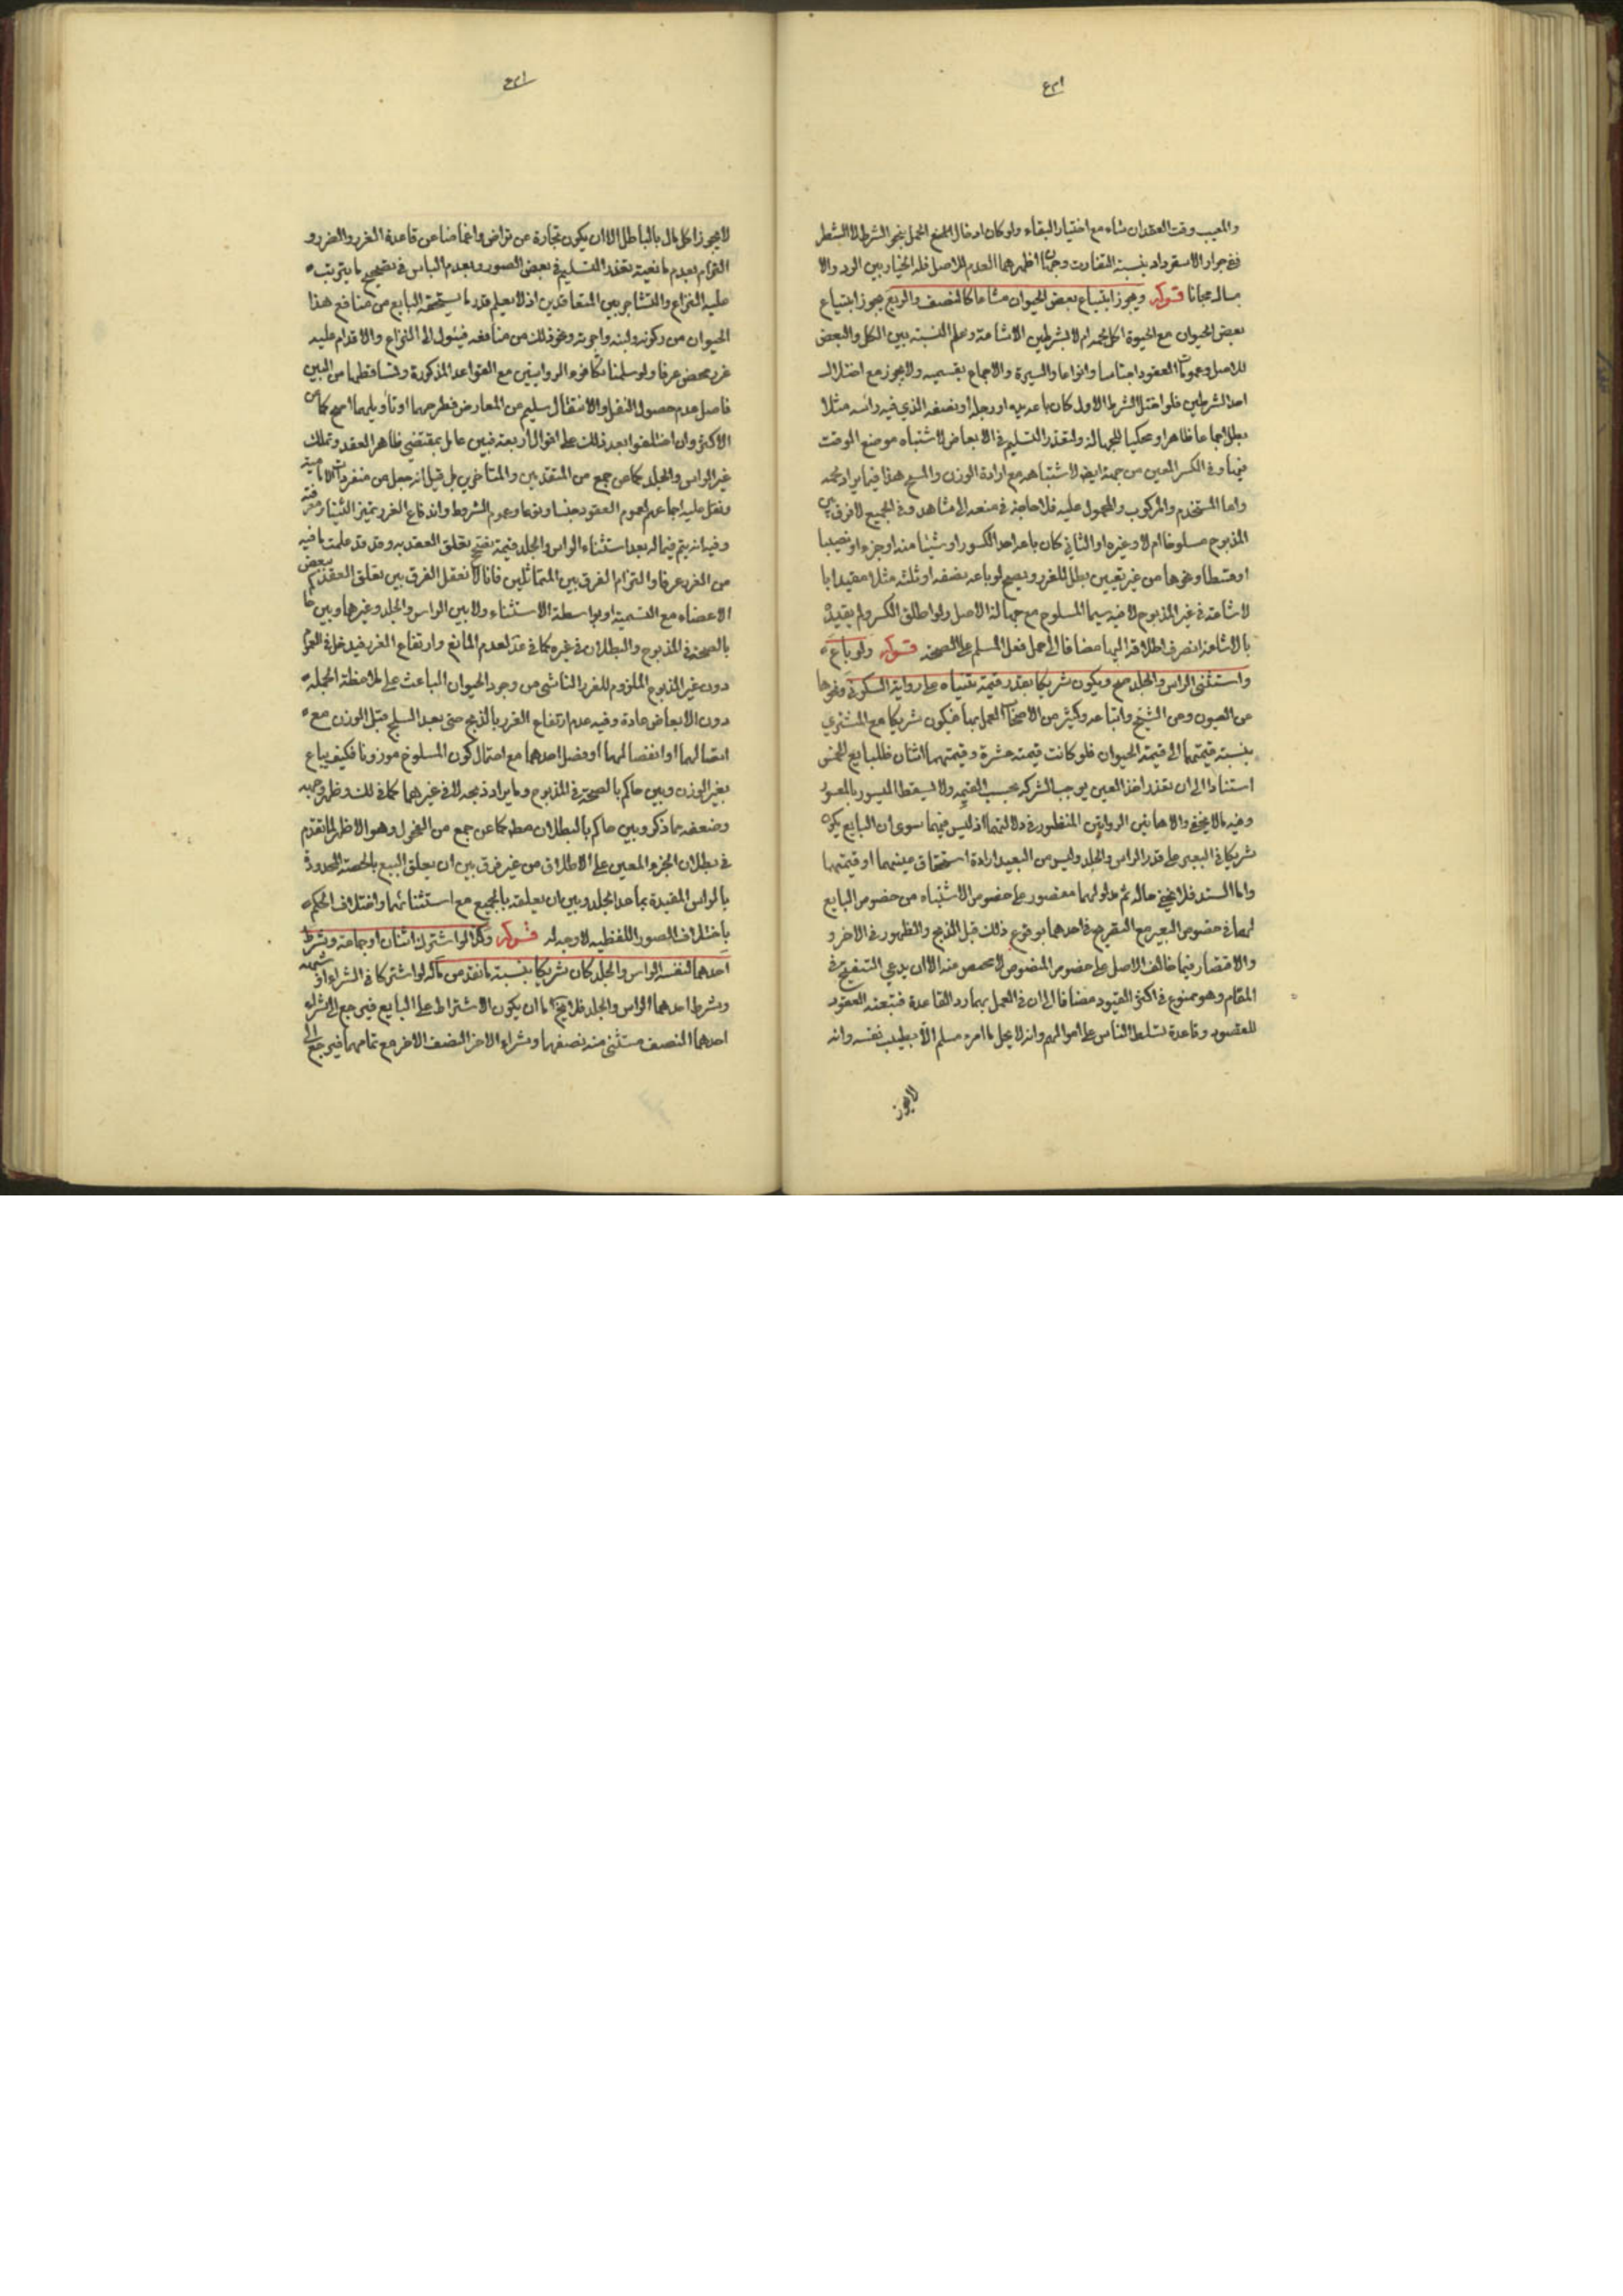 والمعيب وقت العقد ان شاء مع اختيار البقاء ولو كان ادخال الحمل بنحو الشرط لا الشطر
ففي جواز الاسترداد بنسبة التفاوت وجهان اظهرهما العدم للاصل فله الخيار بين الرد والا
مساك مجانا قوله ويجوز ابتياع بعض الحيوان مشاعا كالنصف والربع يجوز ابتياع
بعض الحيوان مع الحيوة اكل لحمه ام لا بشرطين الاشاعة وعلم النسبة بين الكل والبعض
للاصل وعمومات العقود اجناسا وانواعا والسيرة والاجماع بقسميه ولا يجوز مع اختلال
احد الشرطين فلو اختل الشرط الاول كان باعه يده او رجله او نصفه الذي فيه رأسه مثلا
بطل اجماعا ظاهرا ومحكيا للجهالة ولتعذر التسليم في الابعاض لاشتباه موضع الوقت
فيها وفي الكسر المعين من جهة ايضا لاشتباهه مع ارادة الوزن والمسح هذا فيما يراد لحمه
واما المستخدم والمركوب والمحمول عليه فلا حاجة في منعه الى مشاهد وفي الجميع لا فرق بين
المذبوح مسلوخا ام لا وغيره او الثاني كان باعه احد الكسور او شيئا منه او جزء او نصيبا
او قسطا ونحوها من غير تعيين بطل للغرر ويصح لو باعه نصفه او ثلثه مثلا مقيدا با
لاشاعة في غير المذبوح لا فيه سيما المسلوخ مع جهالة الاصل ولو اطلق الكسر ولم يقيده
بالاشاعة انصرف اطلاقه اليها مضافا الى حمل فعل المسلم على الصحة قوله ولو باع
واستثنى الراس والجلد صح ويكون شريكا بقدر قيمة ثنياه على رواية السكوني ونحوها
عن العيون وعن الشيخ واتباعه وكثير من الاصحاب العمل بها فيكون شريكا مع المشتري
بنسبة قيمتهما الى قيمة الحيوان فلو كانت قيمته عشرة وقيمتهما اثنان فللبايع الخمس
استنادا الى ان تعذر اخذ العين يوجب الشركة بحسب القيمة ولا يسقط الميسور بالمعسور
وفيه ما لا يخفى والا هاتين الروايتين المنظور في دلالتهما اذ ليس فيهما سوى ان البايع يكون
شريكا في البعير على قدر الراس والجلد وليس من البعيد ارادة استحقاق عينهما او قيمتهما
واما السند فلا يخفى حاله ثم مدلولهما مقصور على خصوص الاشتباه من خصوص البايع
لهما في خصوص البعير مع التصريح في احدهما بوقوع ذلك قبل الذبح والظهور في الاخر و
والاقتصار فيما خالف الاصل على خصوص المنصوص لا محيص منه الا ان يدعي التنقيح في
المقام وهو ممنوع في اكثر القيود مضافا الى ان في العمل بهما رد القاعدة تبعية العقود
للقصود وقاعدة تسلط الناس على اموالهم وانه لا يحل مال امرء مسلم الا بطيب نفسه وانه
لا يجوز
لا يجوز اكل مال بالباطل الا ان يكون تجارة عن تراض واغماضا عن قاعدة الغرر والضرر و
التزام بعدم مانعية تعذر التسليم في بعض الصور وبعدم الباس في تصحيح ما يترتب
عليه النزاع والتشاجر بين المتعاقدين اذ لا يعلم قدر ما يستحقه البايع من منافع هذا
الحيوان من ركوبه ولبنه واجرته ونحو ذلك من منافعه فيئول الى النزاع والاقدام عليه
غرر محض عرفا ولو سلمنا تكافوء الروايتين مع القواعد المذكورة وتساقطهما من البين
فاصل عدم حصول النقل والانتقال سليم من المعارض فطرحهما او تاويلهما اصح كما عن
الاكثر وان اختلفوا بعد ذلك على اقوال اربعة فبين عامل بمقتضى ظاهر العقد وتملك
غير الراس والجلد كما عن جمع من المتقدمين والمتاخرين بل قيل انه جعل من منفردات الامامية
ونقل عليه اجماعهم لعموم العقود جنسا ونوعا وعموم الشروط واندفاع الغرر بتميز الثنيا ومعرفته
وفيه انه يتم فيما له بعد استثناء الراس والجلد قيمة تصح تعلق العقد به وقد قد علمت ما فيه
من الغرر عرفا والتزام الفرق بين المتماثلين فانا لا نعقل الفرق بين تعلق العقد ببعض
الاعضاء مع التسمية او بواسطة الاستثناء ولا بين الراس والجلد وغيرهما وبين حاكم
بالصحة في المذبوح والبطلان في غيره كما في عد لعدم المانع وارتفاع الغرر فيدخل في العموم
دون غير المذبوح الملزوم للغرر الناشي من وجود الحيوان الباعث على ملاحظة الجملة
دون الابعاض عادة وفيه عدم ارتفاع الغرر بالذبح حتى بعد السلخ قبل الوزن مع
اتصالهما او انفصالهما او فصل احدهما مع احتمال كون المسلوخ موزونا فكيف يباع
بغير الوزن وبين حاكم بالصحة في المذبوح وما يراد ذبحه لا في غيرهما كما في لك وظهر وجهه
وضعفه مما ذكر وبين حاكم بالبطلان مطلقا كما عن جمع من الفحول وهو الاظهر لما تقدم
في بطلان الجزء المعين على الاطلاق من غير فرق بين ان يعلق البيع بالحصة المحدودة
بالراس المقيدة بما عدا الجلد وبين ان يعلقه بالجميع مع استثنائهما واختلاف الحكم
باختلاف الصور اللفظية لا وجه له قوله وكذا لو اشترك اثنان او جماعة وشرط
احدهما لنفسه الراس والجلد كان شريكا بنسبة ما نقد من ماله لو اشتركا في الشراء او
وشرط احدهما الراس والجلد فلا يخ اما ان يكون الاشتراط على البايع فيرجع الى شراء
احدهما النصف مستثنى منه نصفها وشراء الاخر النصف الاخر مع تمامهما فيرجع الى